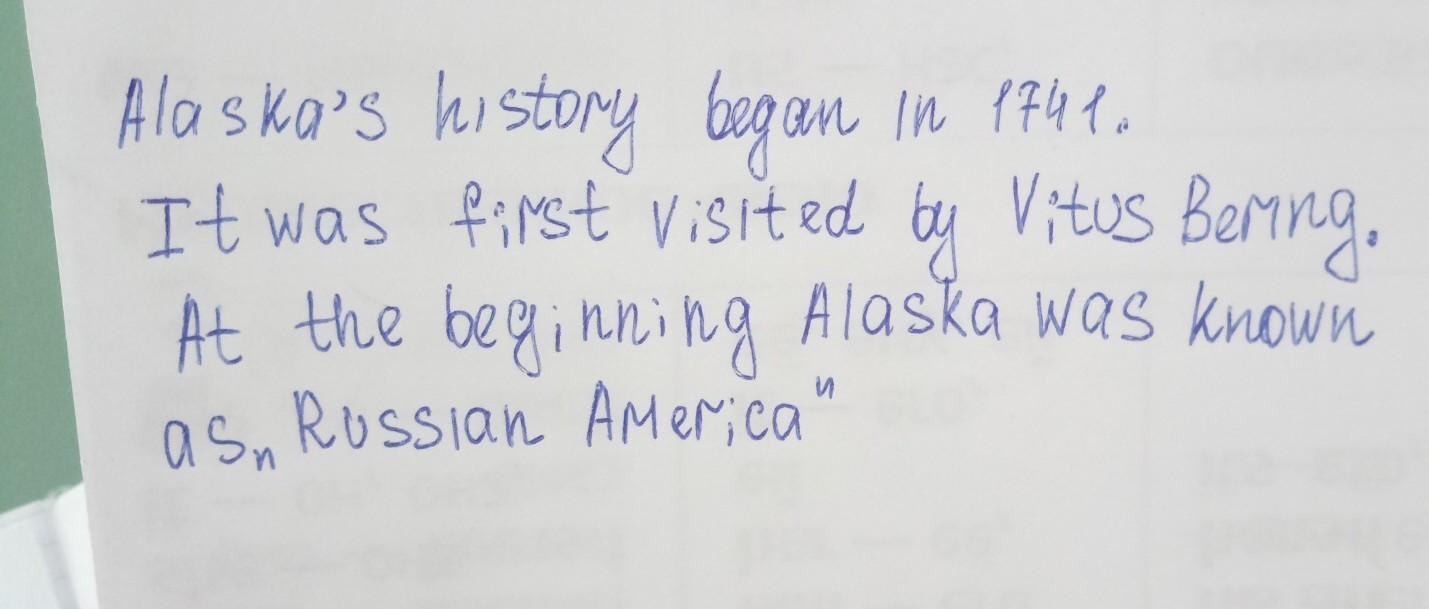 Alaska's history began in 1741.
It was first visited by Vitus Bering.
At the beginning Alaska was known
as „Russian America"